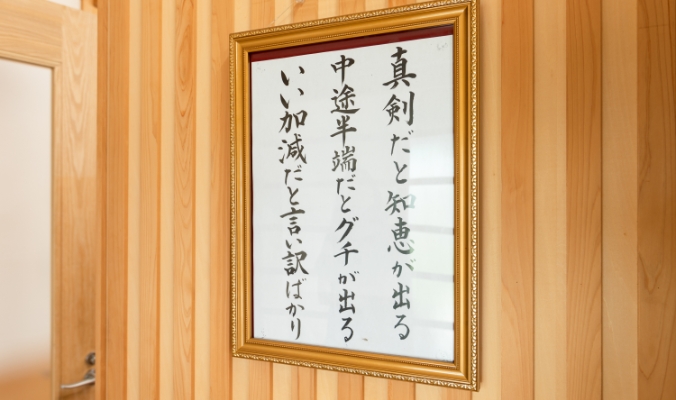 真剣だと知恵が出る
中途半端だとグチが出る
いい加減だと言い訳ばかり